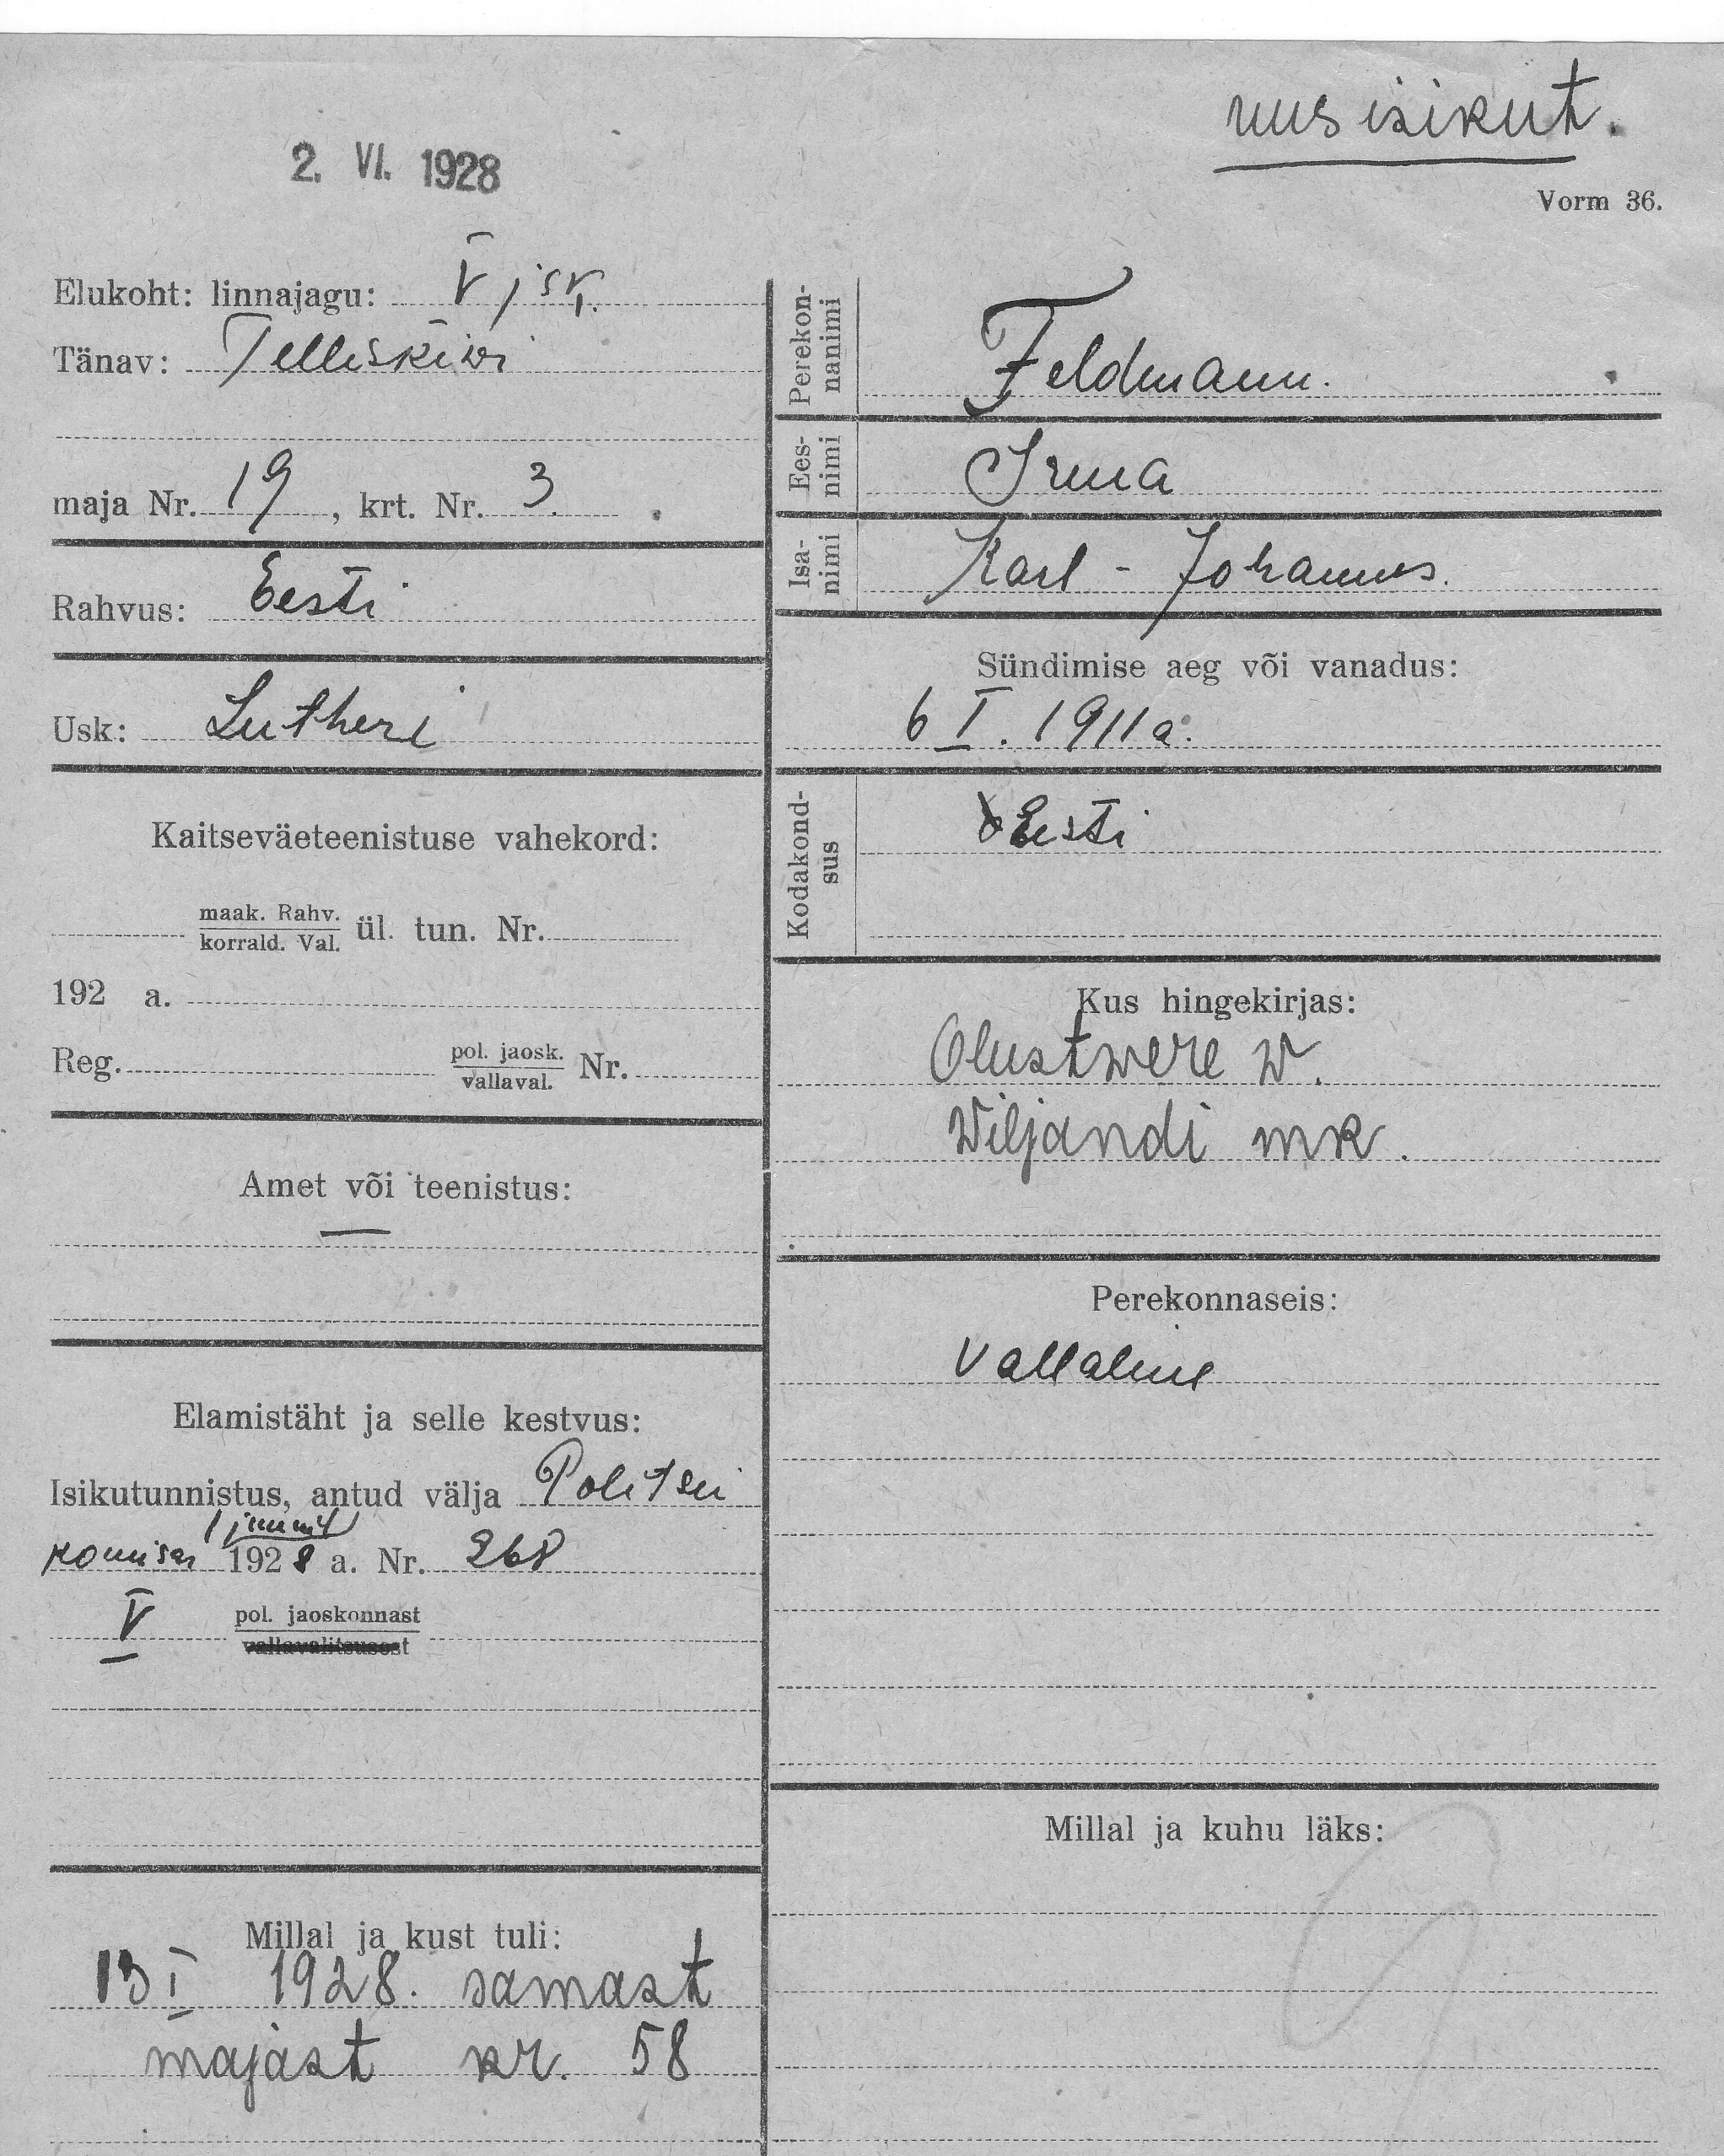 uus isikut.
2. VI. 1928
Vorm 36.
Elukoht: linnajagu: V jsk.
Tänav: Telliskiwi
maja Nr. 19, krt. Nr. 3.
Rahvus: Eesti
Usk: Lutheri
Kaitseväeteenistuse vahekord:
maak. Rahv.
korrald. Val. ül. tun. Nr.
192 a.
Reg. pol. jaosk.
vallaval. Nr.
Amet või teenistus:
—
Elamistäht ja selle kestvus:
Isikutunnistus, antud välja Politsei
1 junil
komisar 1928 a. Nr. 268
V pol. jaoskonnast
vallavalitsusest
Millal ja kust tuli:
13 I 1928. samast
majast kr. 58
Perekon-
nanimi
Feldmann.
Ees-
nimi
Irma
Isa-
nimi
Karl - Johannes.
Sündimise aeg või vanadus:
6 I. 1911 a.
Kodakond-
sus
Eesti
Kus hingekirjas:
Olustwere w.
Wiljandi mk.
Perekonnaseis:
Vallaline
Millal ja kuhu läks: